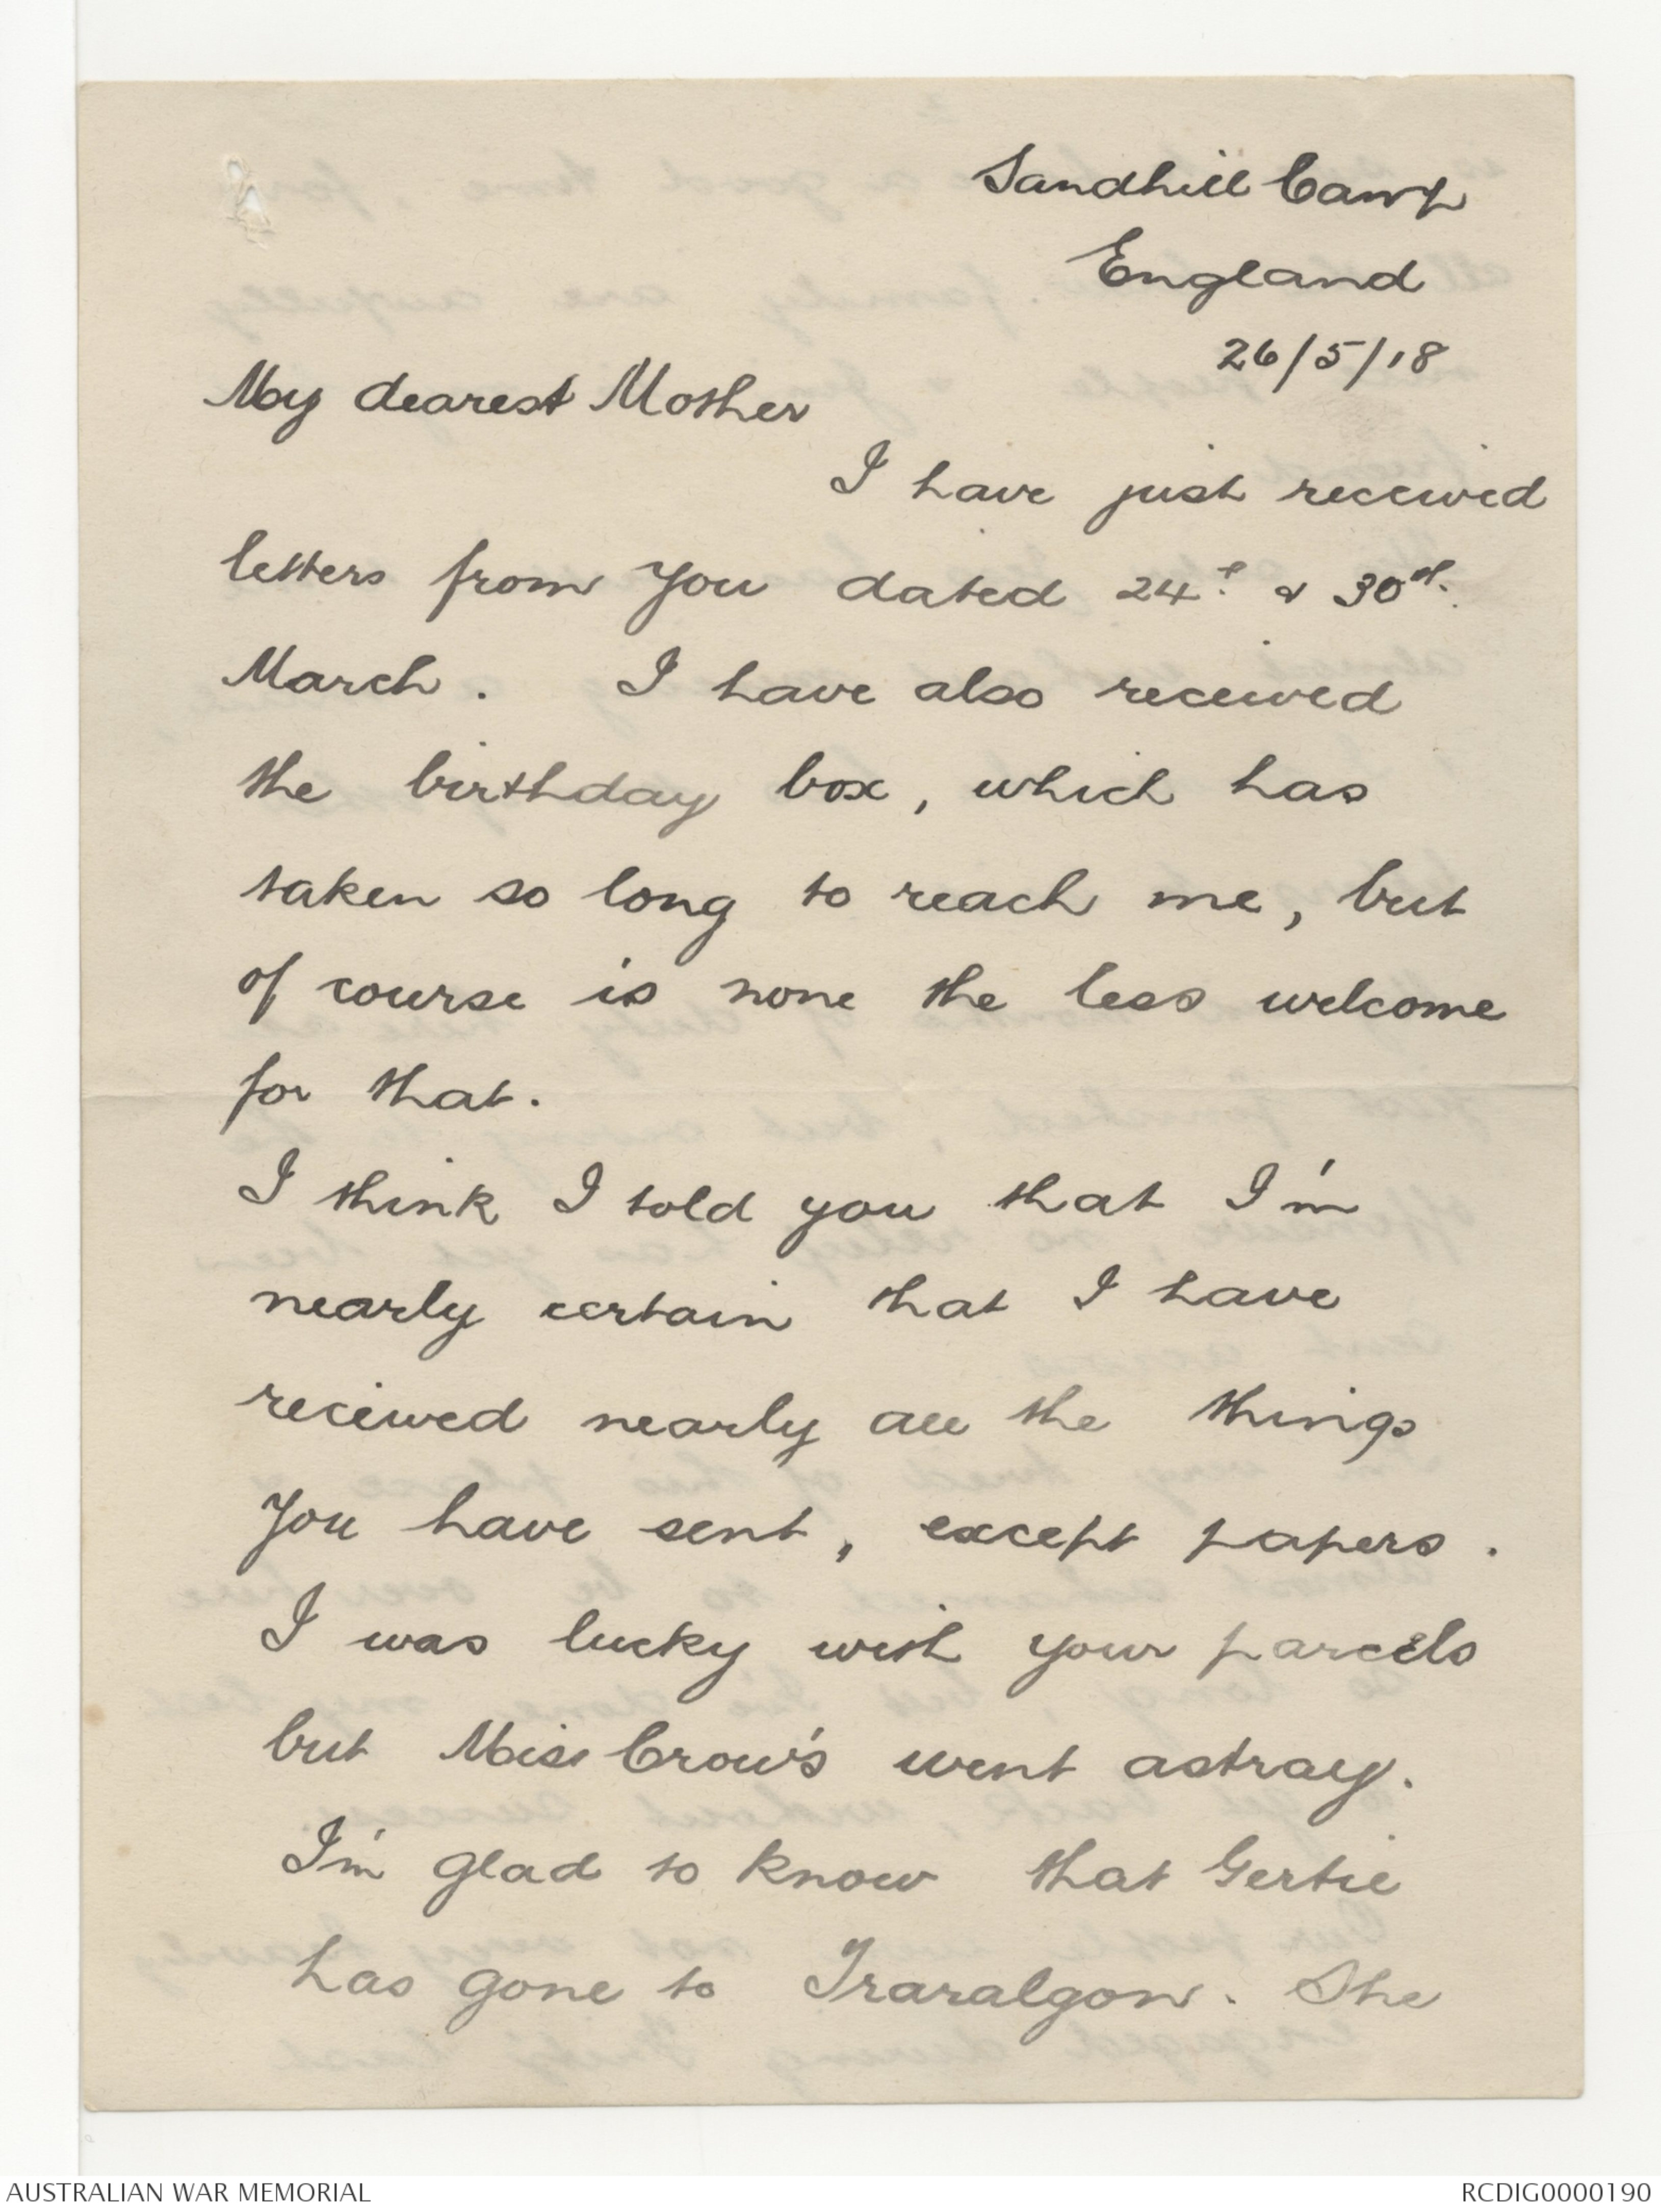 Sandhill Camp
England
26/5/18
My dearest Mother
I have just received
letters from you dated 24th & 30th
March. I have also received
the birthday box, which has
taken so long to reach me, but
of course is none the less welcome
for that.
I think I told you that I'm
nearly certain that I have
received nearly all the things
you have sent, except papers.
I was lucky with your parcels
but Miss Crow's went astray.
I'm glad to know that Gertie
has gone to Traralgon. She
AUSTRALIAN WAR MEMORIAL
RCDIG0000190